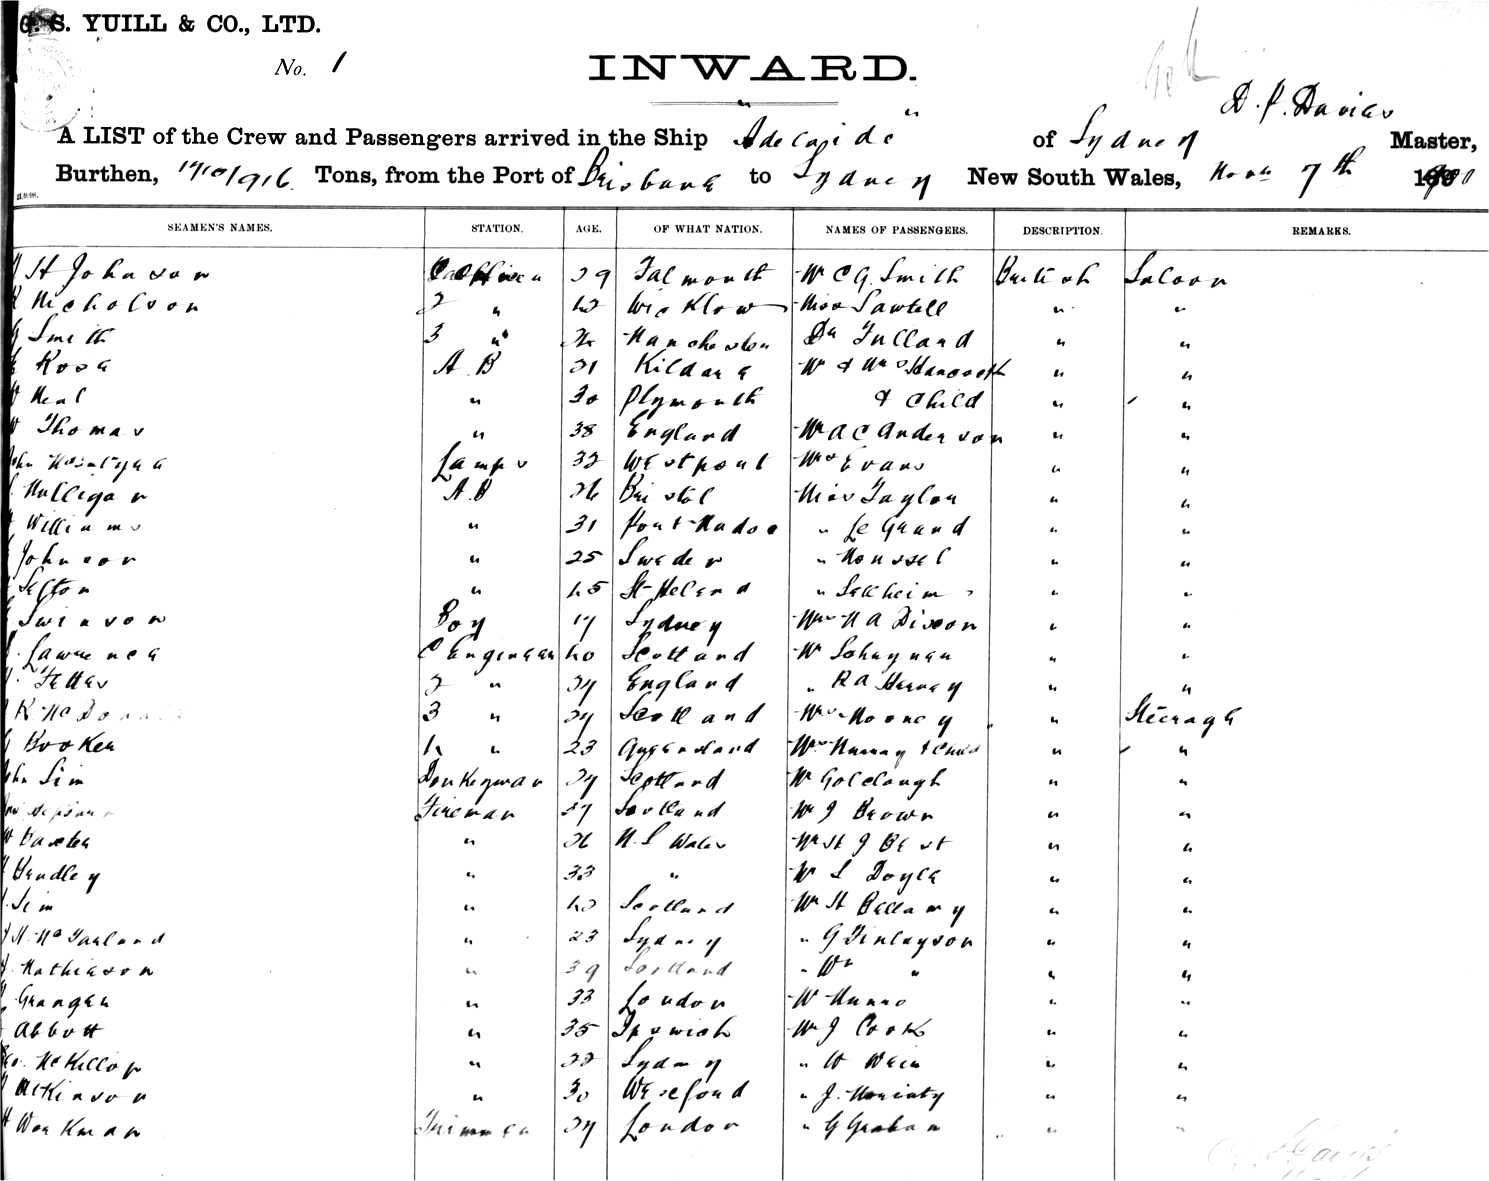 G. S. YUILL & CO., LTD.
No. 1
INWARD.
D. P. Davies
A LIST of the Crew and Passengers arrived in the Ship "Adelaide" of Sydney Master,
Burthen, 1710/916 Tons, from the Port of Brisbane to Sydney New South Wales, Novr 7th 1900
SEAMEN'S NAMES. STATION. AGE. OF WHAT NATION. NAMES OF PASSENGERS. DESCRIPTION. REMARKS.
H Johnson 29 Falmouth Mr C G. Smith British Saloon
Nicholson 2 " 42 Wicklow Miss Sawtell " "
Smith 3 " Manchester Dr Fulland " "
Rose A B 21 Kildare Mr & Mrs Hancock " "
Neal " 30 Plymouth & Child " "
W Thomas " 38 England Mr A C Anderson " "
John Lamps 32 Westport Mrs Evans " "
Mulligan A.B 26 Bristol Miss Taylor " "
Williams " 31 Port Madoc " Le Grand " "
Johnson " 25 Sweden " " "
Sefton " 45 St Helend " Sellheim " "
Swinson Boy 17 Sydney Mrs N A Dixon " "
Lawrence C Engineer 40 Scotland Mr " "
Fettes 2 " 37 England " R A Harvey " "
K. McDonald 3 " 27 Scotland Mrs Mooney " Steerage
Booker 4 " 23 Queensland Mrs Murray & Child " "
John Sim Donkeyman 37 Scotland Mr Golclough " "
Fireman 37 Scotland Mr J Brown " "
W Baxter " 26 N. S Wales Mr H J Best " "
Handley " 33 " Mr L Doyle " "
Sim " 40 Scotland Mr H Bellamy " "
H. McFarland " 23 Sydney " G Finlayson " "
Mathieson " 39 Scotland " Wm " " "
Granger " 33 London Mr Munro " "
Abbott " 35 Ipswich Mr J Cook " "
Geo. McKillop " 22 Sydney " W Weir " "
Atkinson " 30 Wexford " J. Moriarty " "
H Workman Trimmer 37 London " G Graham " "